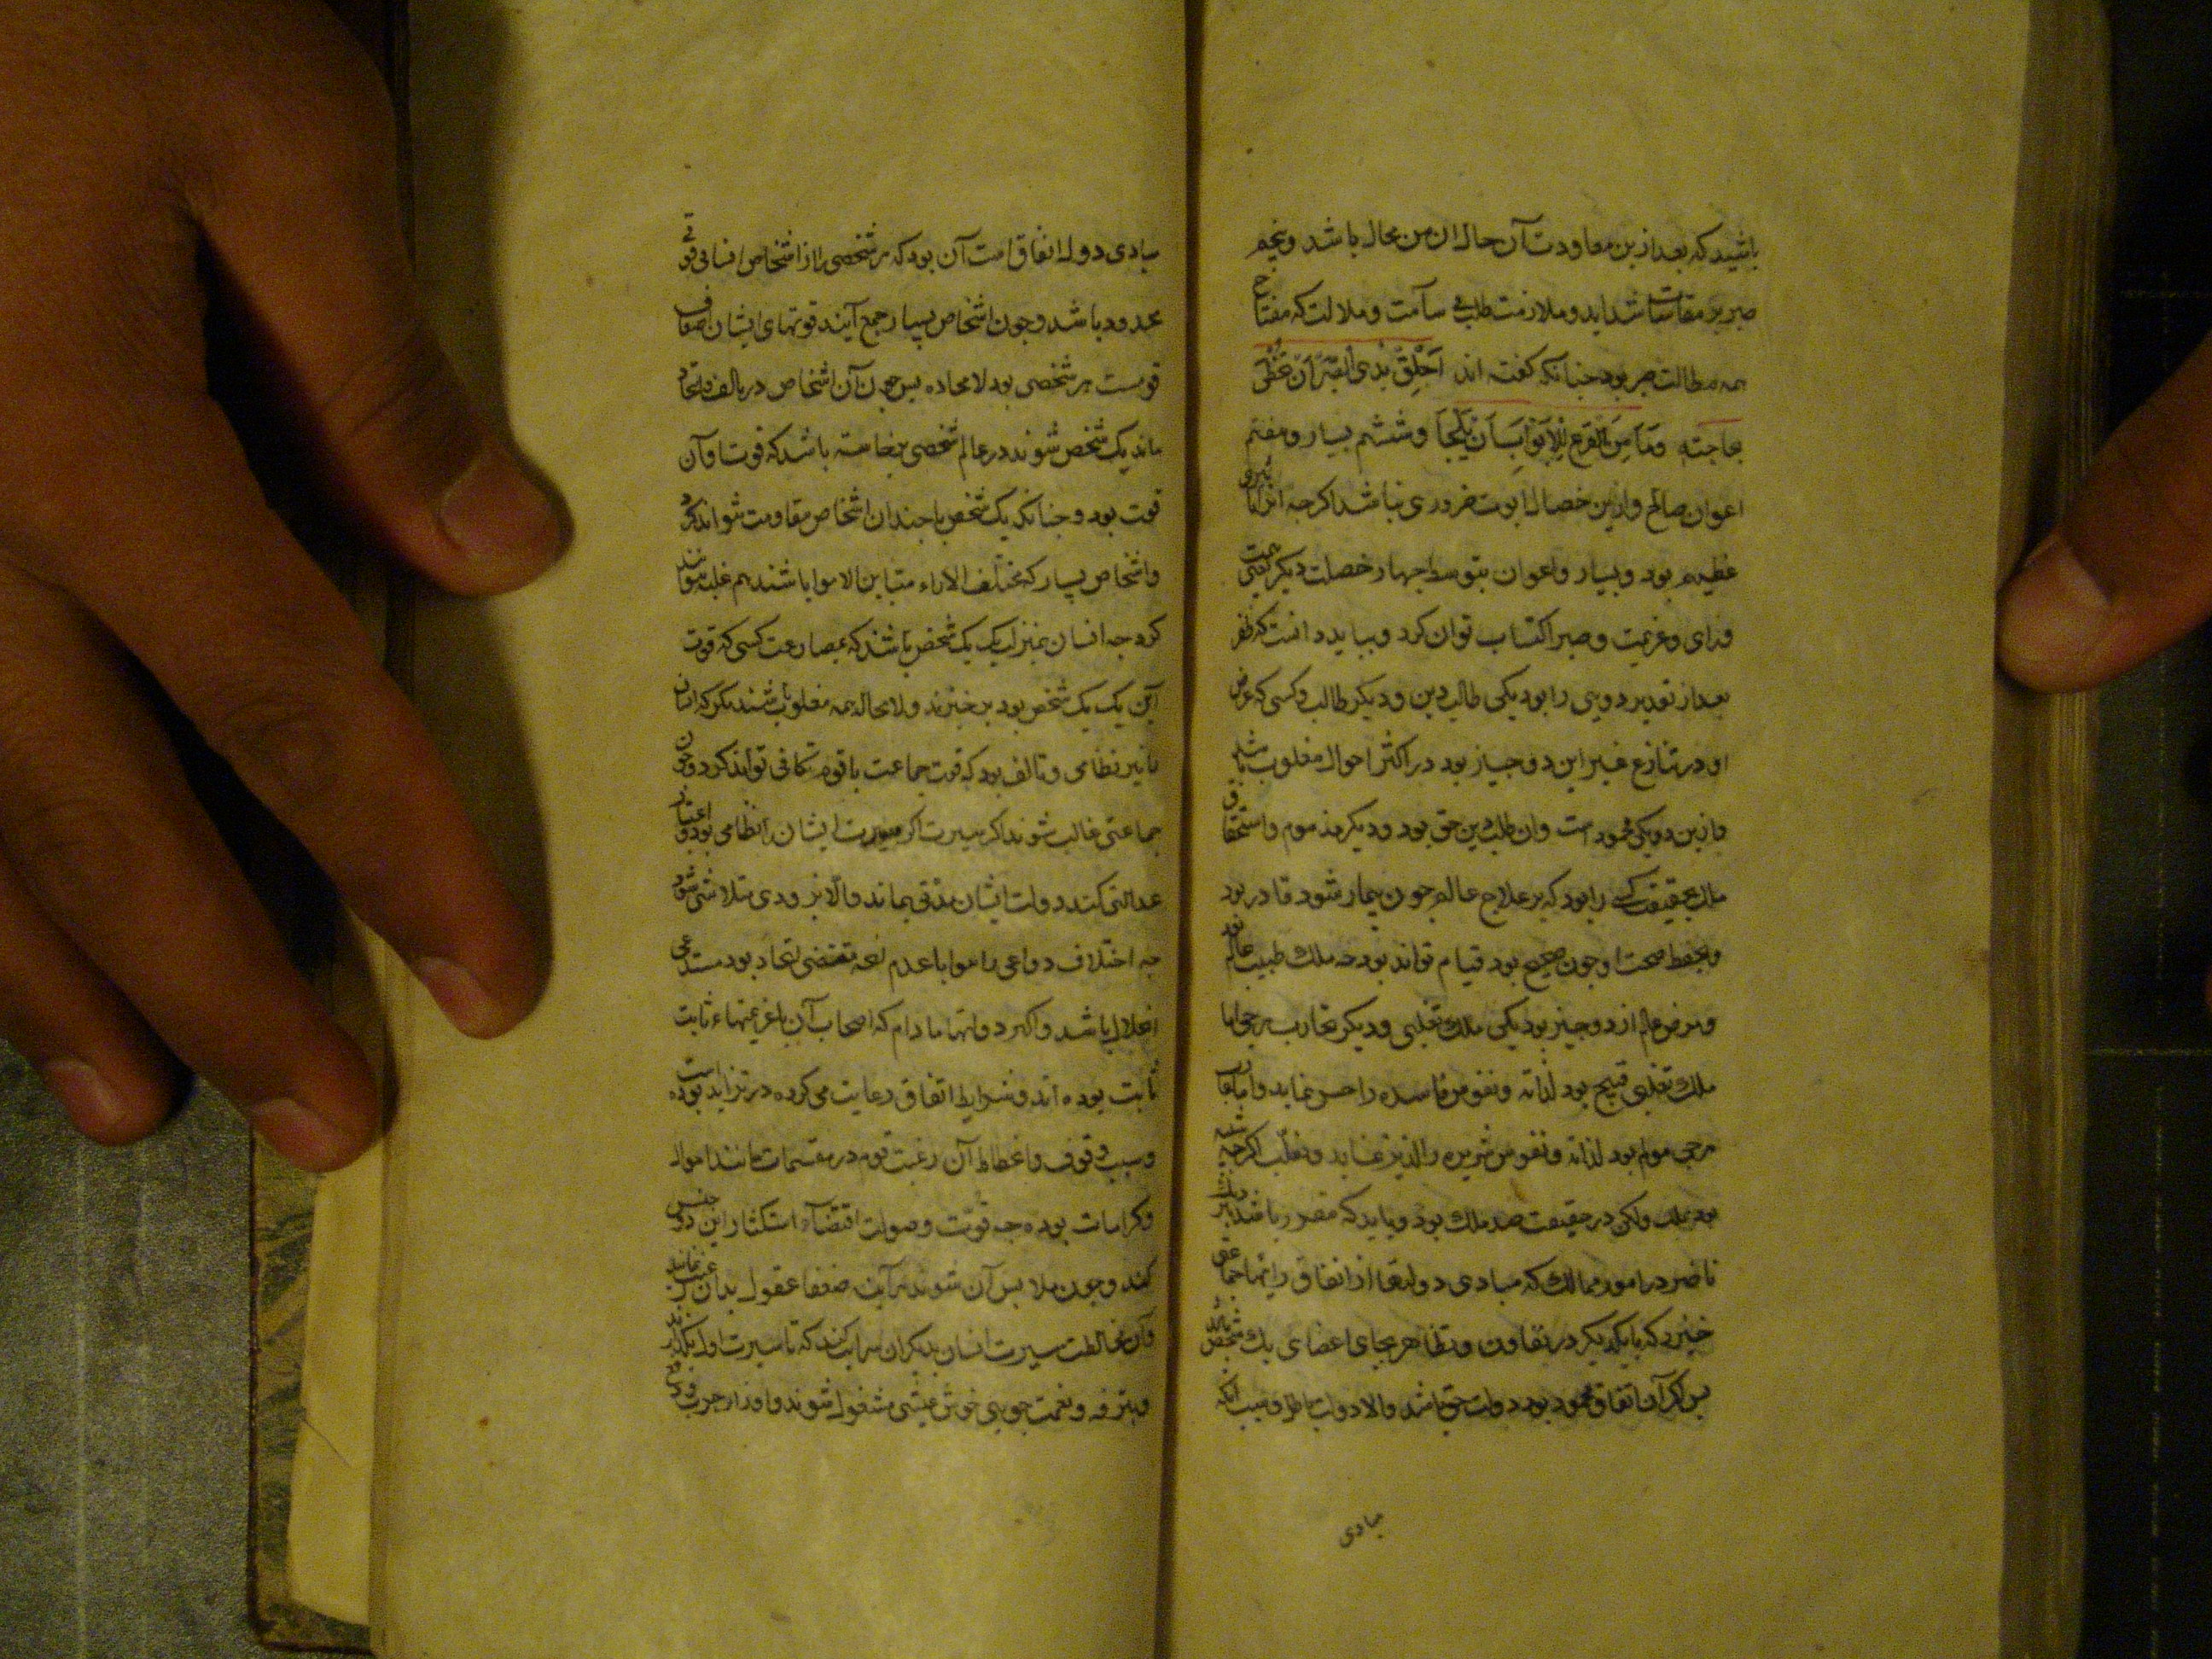 باشید که بعد ازین معاودت آن حال ان من محال باشد و پنجم
صبر بر مقاسات شداید و ملازمت طلب بی سآمت و ملالت که مفتاح
همه مطالب صبر بود چنانکه کفته اند اَخْلِقْ بِذِی الصَّبْرِ اَنْ یَحْظَی
بحاجته و مُدْمِنِ القَرْعِ لِلْاَبْوَابِ اَنْ یَلِجَا و ششم یسار و هفتم
اعوان صالح و ازین خصال ابوت ضروری نباشد اکرچه انرا تاثیری
عظیم بود و یسار و اعوان بتوسط چهار خصلت دیکر یعنی همت
و رای و عزیمت و صبر اکتساب توان کرد و بباید دانست که ظفر
بعد از تقدیر دو کس را بود یکی طالب دین و دیکر طالب و کسی که غرض
او در تنازع غیر این دو چیز بود در اکثر احوال مغلوب باشد
و ازین دو یکی محمود است و ان طلب دین حق بود و دیکر مذموم و استحقاق
ملک بحقیقت کسی را بود که بر علاج عالم چون بیمار شود قادر بود
و بحفظ صحت او چون صحیح بود قیام تواند بود چه ملک طبیب عالم بود
و مرض عالم از دو چیز بود یکی ملک تغلبی و دیکر تجارب هرجی اما
ملک تغلبی قبیح بود لذاته و نفوس فاسده را حسن نماید و اما تجارب
هرجی مولم بود لذاته و نفوس شریره را لذیذ نماید و تغلب اکرچه شبیه
بود بملک ولکن در حقیقت ضد ملک بود و باید که مقرر باشد نزدیک
ناضر در امور ممالک که مبادی دولتها از اتفاق رایهاء جماعتی
خیزد که با یکدیکر در تعاون و تظاهر بجای اعضای یک شخص باشند
پس اکر آن اتفاق محمود بود دولت حق باشد والا دولت باطل و سبب انکه
مبادی
مبادی دول اتفاق است آن بود که هر شخصی را از اشخاص انسانی قوتی
محدود باشد و چون اشخاص بسیار جمع آیند قوتهای ایشان اضعاف
قوت هر شخصی بود لا محاله پس چون آن اشخاص در تالف و اتحاد
مانند یک شخص شوند در عالم شخصی برخاسته باشد که قوت او آن
قوت بود و چنانکه یک شخص با چندان اشخاص مقاومت نتواند کرد
و اشخاص بسیار که مختلف الاراء متباین الاهوا باشند هم غلبه نتوانند
کرد چه انسان بمنزلت یک یک شخص باشند که بمصارعت کسی که قوت
این یک یک شخص بود بر خیزند و لا محاله همه مغلوب باشند مکر که انسان
نیز نظامی و تالف بود که قوت جماعت با قوم تکافی تواند کرد و چون
جماعتی غالب شوند اکر سیرت ایشان را نظامی بود و اعتبار
عدالتی کنند دولت ایشان مدتی بماند و الا بزودی متلاشی شود
چه اختلاف دواعی و اهوا با عدم انچه مقتضی اتحاد بود مستدعی
انحلال باشد و اکثر دولتها مادام که اصحاب آن با عزیمتهاء ثابت
ثابت بوده اند و شرایط اتفاق رعایت می کرده در تزاید بوده است
و سبب وقوف و انحطاط آن رغبت قوم در مقتنیات مانند اموال
و کرامات بوده چه قوت و صولت اقتضاء استکثار این دو جنس
کند و چون ملابس آن شوند هر آینه ضعفا عقول بدان رغبت نمایند
و از مخالطت سیرت انسان بدیکران سرایت کند که تا سیرت اول بکذارند
و بترفه و نعمت جویی خوش عیشی مشغول شوند و اوزار حرب و دفع